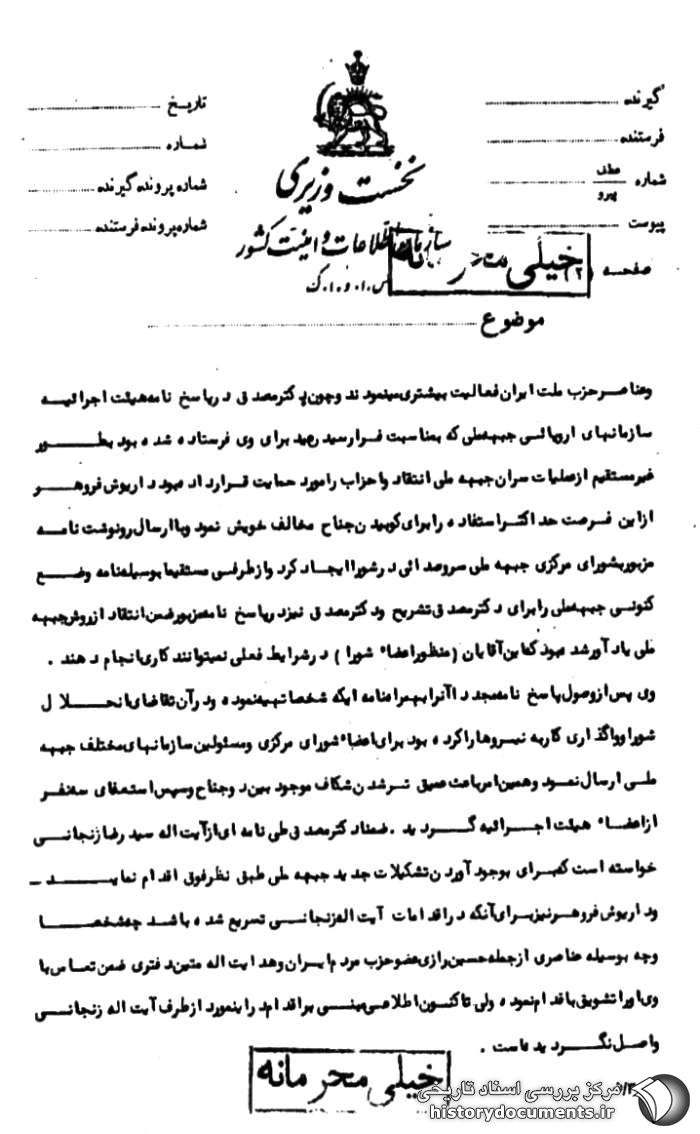 گیرنده
فرستنده
شماره عطف پیرو
پیوست
صفحه (۲)
تاریخ
شماره
شماره پرونده گیرنده
شماره پرونده فرستنده
نخست وزیری
سازمان اطلاعات و امنیت کشور
س.ا.و.ا.ک
خیلی محرمانه
موضوع
وعناصر حزب ملت ایران فعالیت بیشتری مینمودند و چون دکتر مصدق در پاسخ نامه هیئت اجرائیه
سازمانهای اروپائی جبهه ملی که بمناسبت فرا رسید رعید برای وی فرستاده شده بود بطور
غیر مستقیم از عملیات سران جبهه ملی انتقاد و احزاب را مورد حمایت قرار داده بود داریوش فروهر
از این فرصت حداکثر استفاده را برای کوبیدن جناح مخالف خویش نمود و با ارسال رونوشت نامه
مزبور بشورای مرکزی جبهه ملی سر و صدائی در شورا ایجاد کرد و از طرفی مستقیما بوسیله نامه وضع
کنونی جبهه ملی را برای دکتر مصدق تشریح و دکتر مصدق نیز در پاسخ نامه مزبور ضمن انتقاد از روش جبهه
ملی یادآور شده بود که این آقایان (منظور اعضاء شورا) در شرایط فعلی نمیتوانند کاری انجام دهند .
وی پس از وصول پاسخ نامه مجددا آنرا بهمراه نامه ایکه شخصا تهیه نموده و در آن تقاضای انحلال
شورا و واگذاری کار به نیروها را کرده بود برای اعضاء شورای مرکزی و مسئولین سازمانهای مختلف جبهه
ملی ارسال نمود و همین امر باعث عمیق تر شدن شکاف موجود بین دو جناح و سپس استعفای سه نفر
از اعضاء هیئت اجرائیه گردید . ضمنا دکتر مصدق طی نامه ای از آیت اله سید رضا زنجانی
خواسته است که برای بوجود آوردن تشکیلات جدید جبهه ملی طبق نظر فوق اقدام نماید ـ
و داریوش فروهر نیز برای آنکه در اقدامات آیت اله زنجانی تسریع شده باشد چه شخصا
و چه بوسیله عناصری از جمله حسین رازی عضو حزب مردم ایران و هدایت اله متین دفتری ضمن تماس با
وی او را تشویق باقدام نموده ولی تاکنون اطلاعی مبنی بر اقدام در اینمورد از طرف آیت اله زنجانی
واصل نگردیده است .
خیلی محرمانه
مرکز بررسی اسناد تاریخی
historydocuments.ir